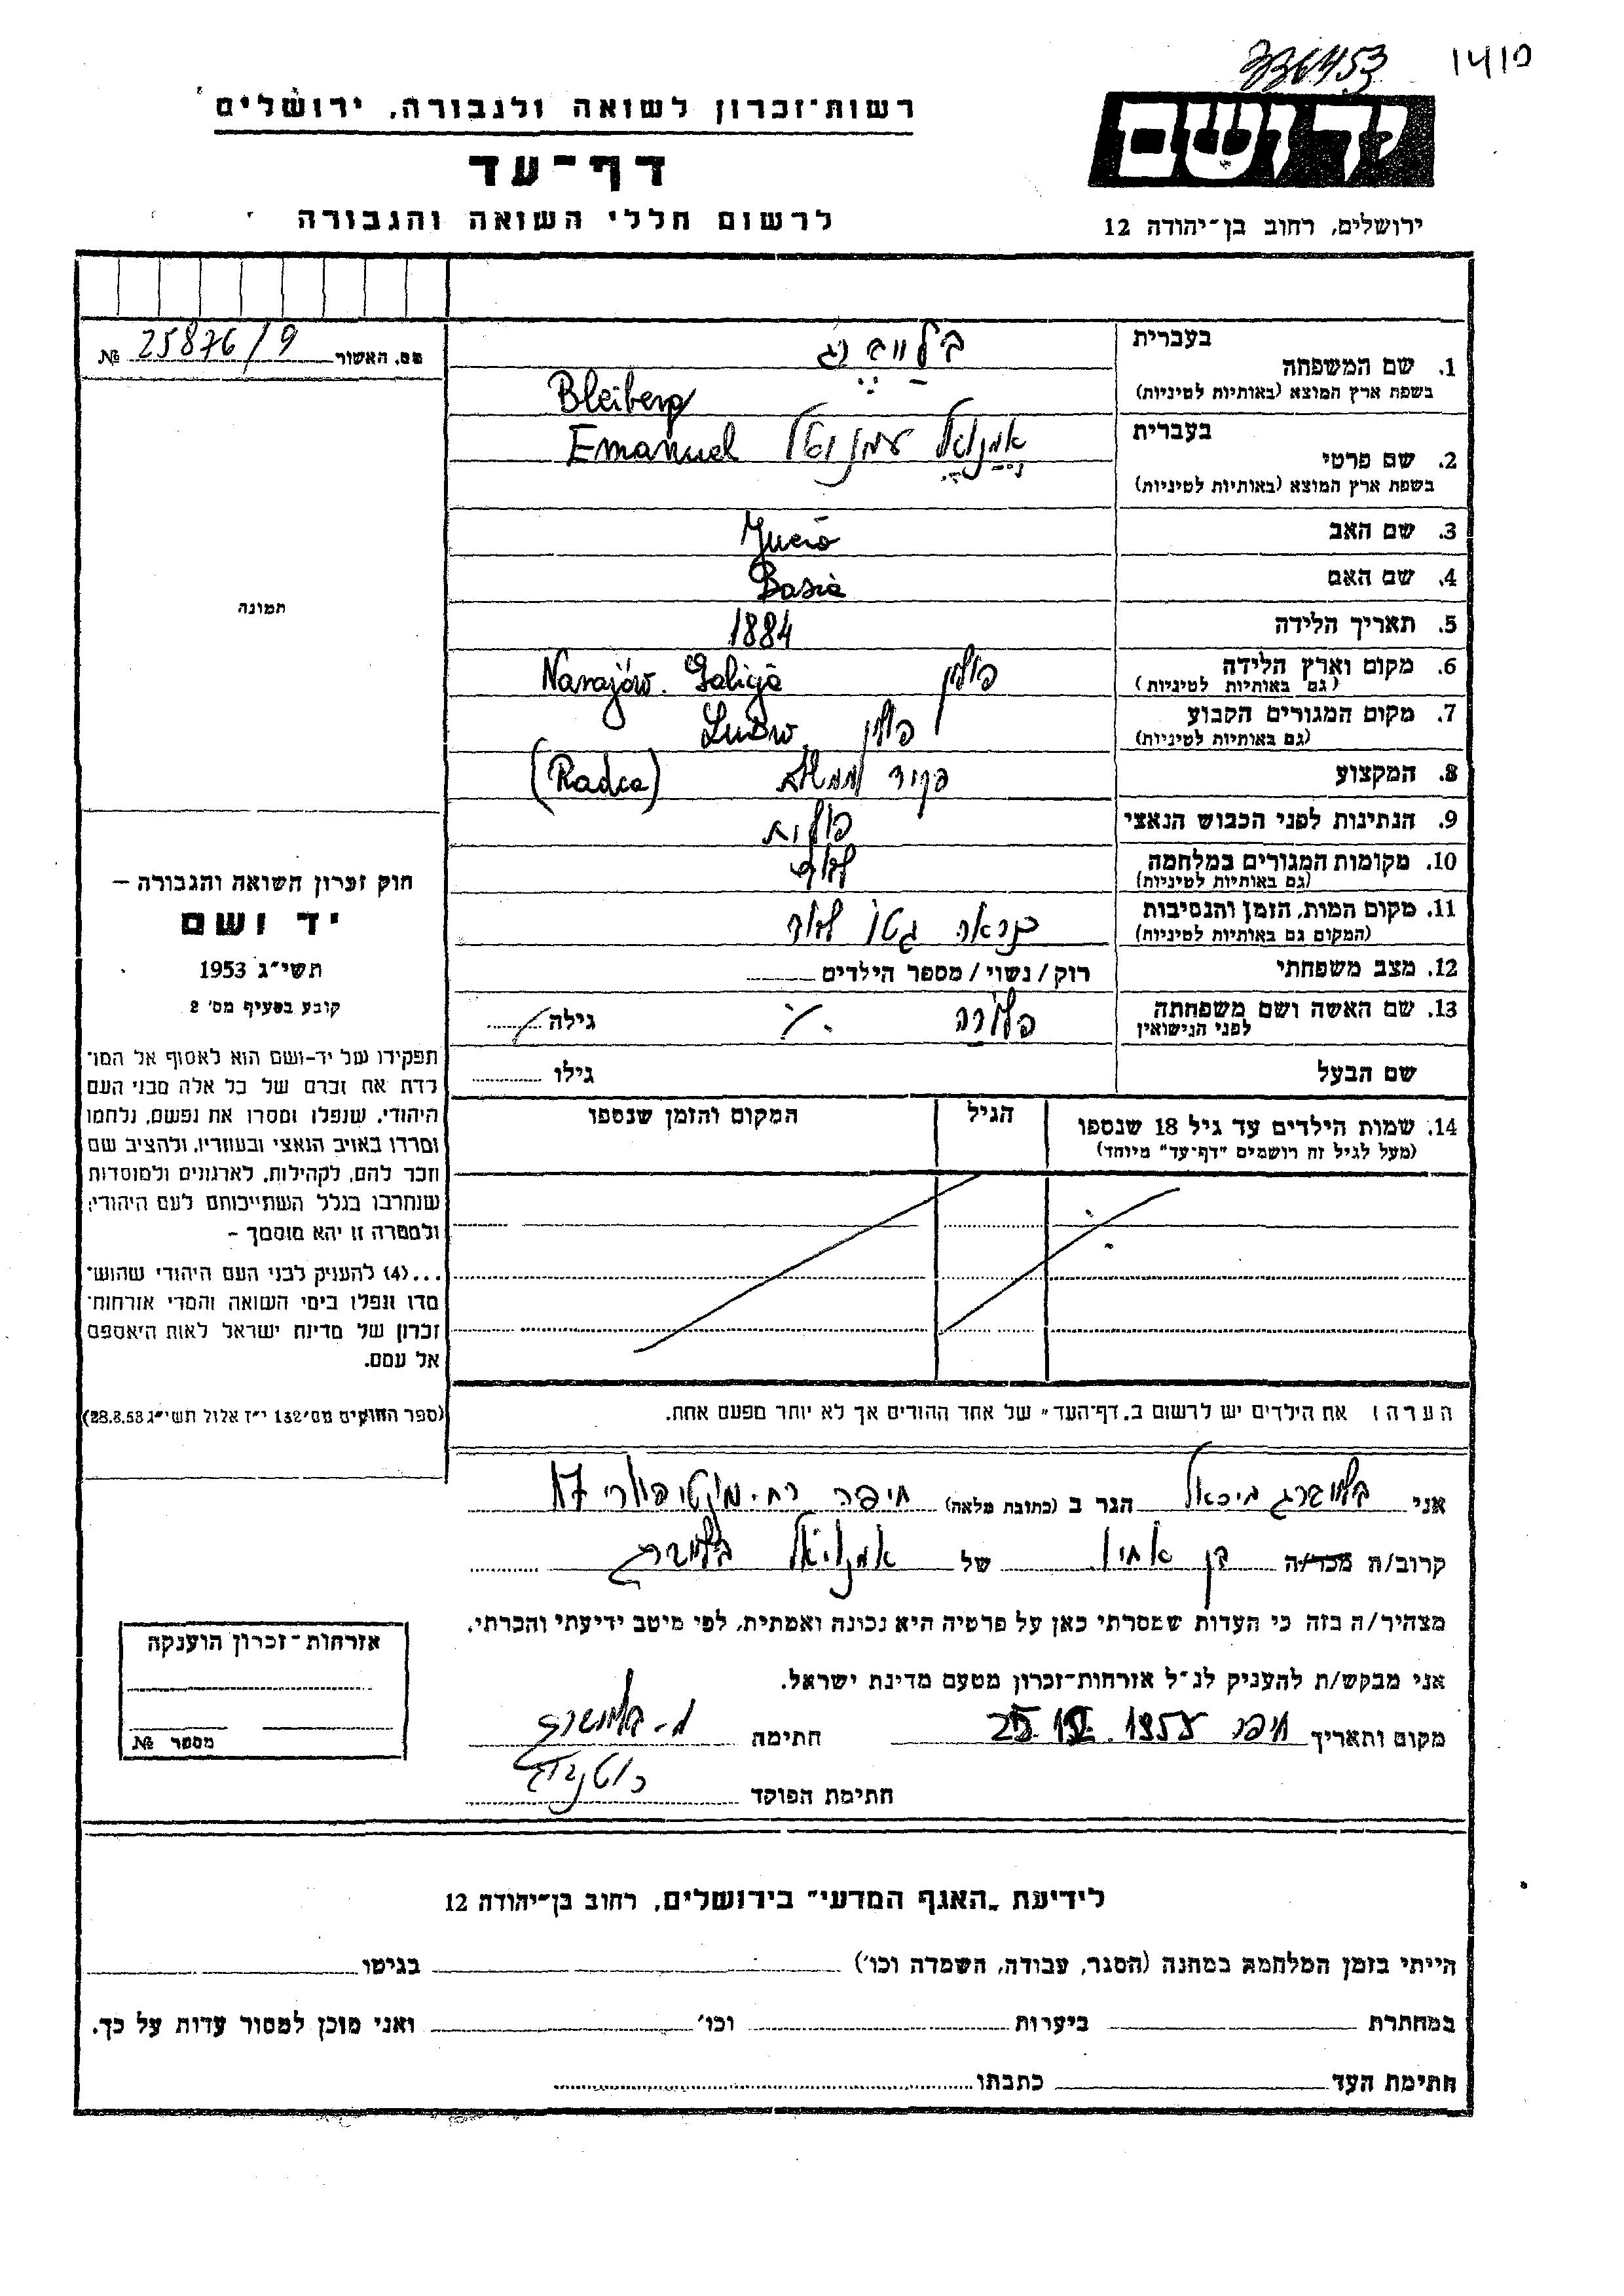 336453
רשות-זכרון לשואה ולגבורה, ירושלים
דף-עד
לרשום חללי השואה והגבורה
יד ושם
ירושלים, רחוב בן-יהודה 12
מס. האשור 25876/9 №
תמונה
חוק זכרון השואה והגבורה –
יד ושם
תשי"ג 1953
קובע בסעיף מס' 2
תפקידו של יד-ושם הוא לאסוף אל המו־
לדת את זכרם של כל אלה מבני העם
היהודי, שנפלו ומסרו את נפשם, נלחמו
ומרדו באויב הנאצי ובעוזריו, ולהציב שם
וזכר להם, לקהילות, לארגונים ולמוסדות
שנחרבו בגלל השתייכותם לעם היהודי;
ולמטרה זו יהא מוסמך –
...(4) להעניק לבני העם היהודי שהוש־
מדו ונפלו בימי השואה והמרי אזרחות־
זכרון של מדינת ישראל לאות היאספם
אל עמם.
(ספר החוקים מס' 132 י"ז אלול תשי"ג 28.8.53)
בעברית
1. שם המשפחה
בשפת ארץ המוצא (באותיות לטיניות)
בלייברג
Bleiberg
בעברית
2. שם פרטי
בשפת ארץ המוצא (באותיות לטיניות)
אמנואל עמנואל Emanuel
3. שם האב
4. שם האם Basia
5. תאריך הלידה 1884
6. מקום וארץ הלידה פולין Narajów. Galicja
(גם באותיות לטיניות)
7. מקום המגורים הקבוע פולין Lwów
(גם באותיות לטיניות)
8. המקצוע פקיד (Radca)
9. הנתינות לפני הכבוש הנאצי פולנית
10. מקומות המגורים במלחמה לבוב
(גם באותיות לטיניות)
11. מקום המות, הזמן והנסיבות כנראה גטו לבוב
(המקום גם באותיות לטיניות)
12. מצב משפחתי רוק / נשוי / מספר הילדים
13. שם האשה ושם משפחתה גילה
לפני הנישואין
שם הבעל גילו
14. שמות הילדים עד גיל 18 שנספו הגיל המקום והזמן שנספו
(מעל לגיל זה רושמים "דף-עד" מיוחד)
הערה: את הילדים יש לרשום ב"דף-העד" של אחד ההורים אך לא יותר מפעם אחת.
אני בלייברג מיכאל הגר ב (כתובת מלאה) חיפה רח.
קרוב/ה מכר/ה בן אחיו של אמנואל בלייברג
מצהיר/ה בזה כי העדות שמסרתי כאן על פרטיה היא נכונה ואמתית, לפי מיטב ידיעתי והכרתי.
אני מבקש/ת להעניק לנ"ל אזרחות-זכרון מטעם מדינת ישראל.
מקום ותאריך חיפה חתימה מ. בלייברג
חתימת הפוקד
אזרחות-זכרון הוענקה
מספר №
לידיעת "האגף המדעי" בירושלים, רחוב בן-יהודה 12
הייתי בזמן המלחמה במחנה (הסגר, עבודה, השמדה וכו') בגיטו
במחתרת ביערות וכו' ואני מוכן למסור עדות על כך.
חתימת העד כתבתו